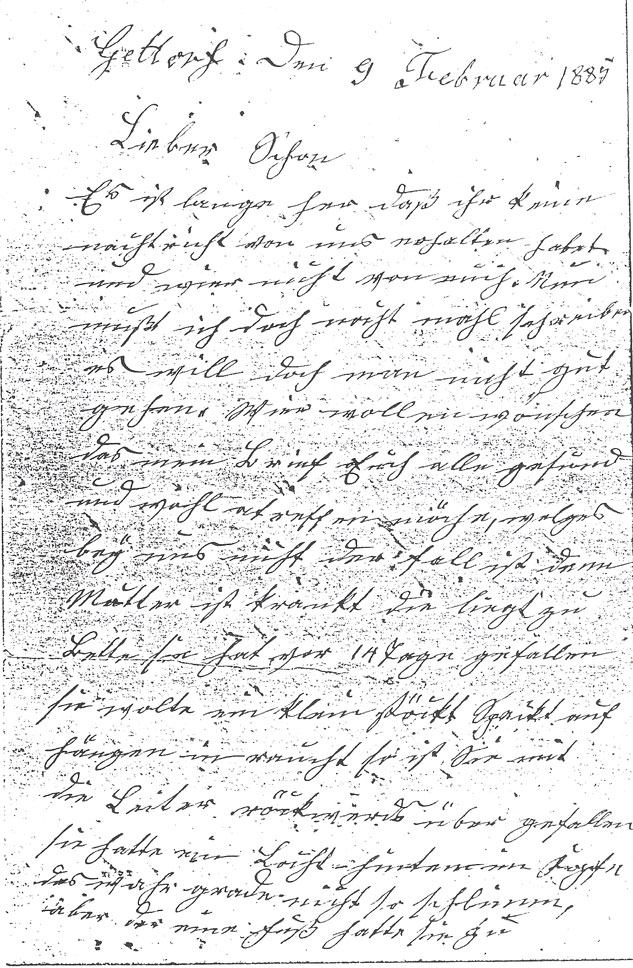 Gettorf. Den 9 Februar 1887
Lieber Sohn
Es ist lange her daß ihr keine
nachtricht von uns erhalten habet
und wier nicht von euch. Nun
mußt ich doch nocht mahl schreiben
es will doch man nicht gut
gehen. Wier wollen wönschen
das mein Brief Euch alle gesund
und wohl atreffen möche, welges
bey uns nicht der fall ist denn
Mutter ist krankt die liegt zu
Bette sie hat vor 14 Tage gefallen
sie wolte ein klein stöckt Speckt auf
hängen in raucht so ist Sie mit
die Leiter röckwerds über gefallen
sie hatte ein Locht hinten im Kopfe
das wahr grade nicht so schlimm,
aber der eine Fuß hatte sie zu